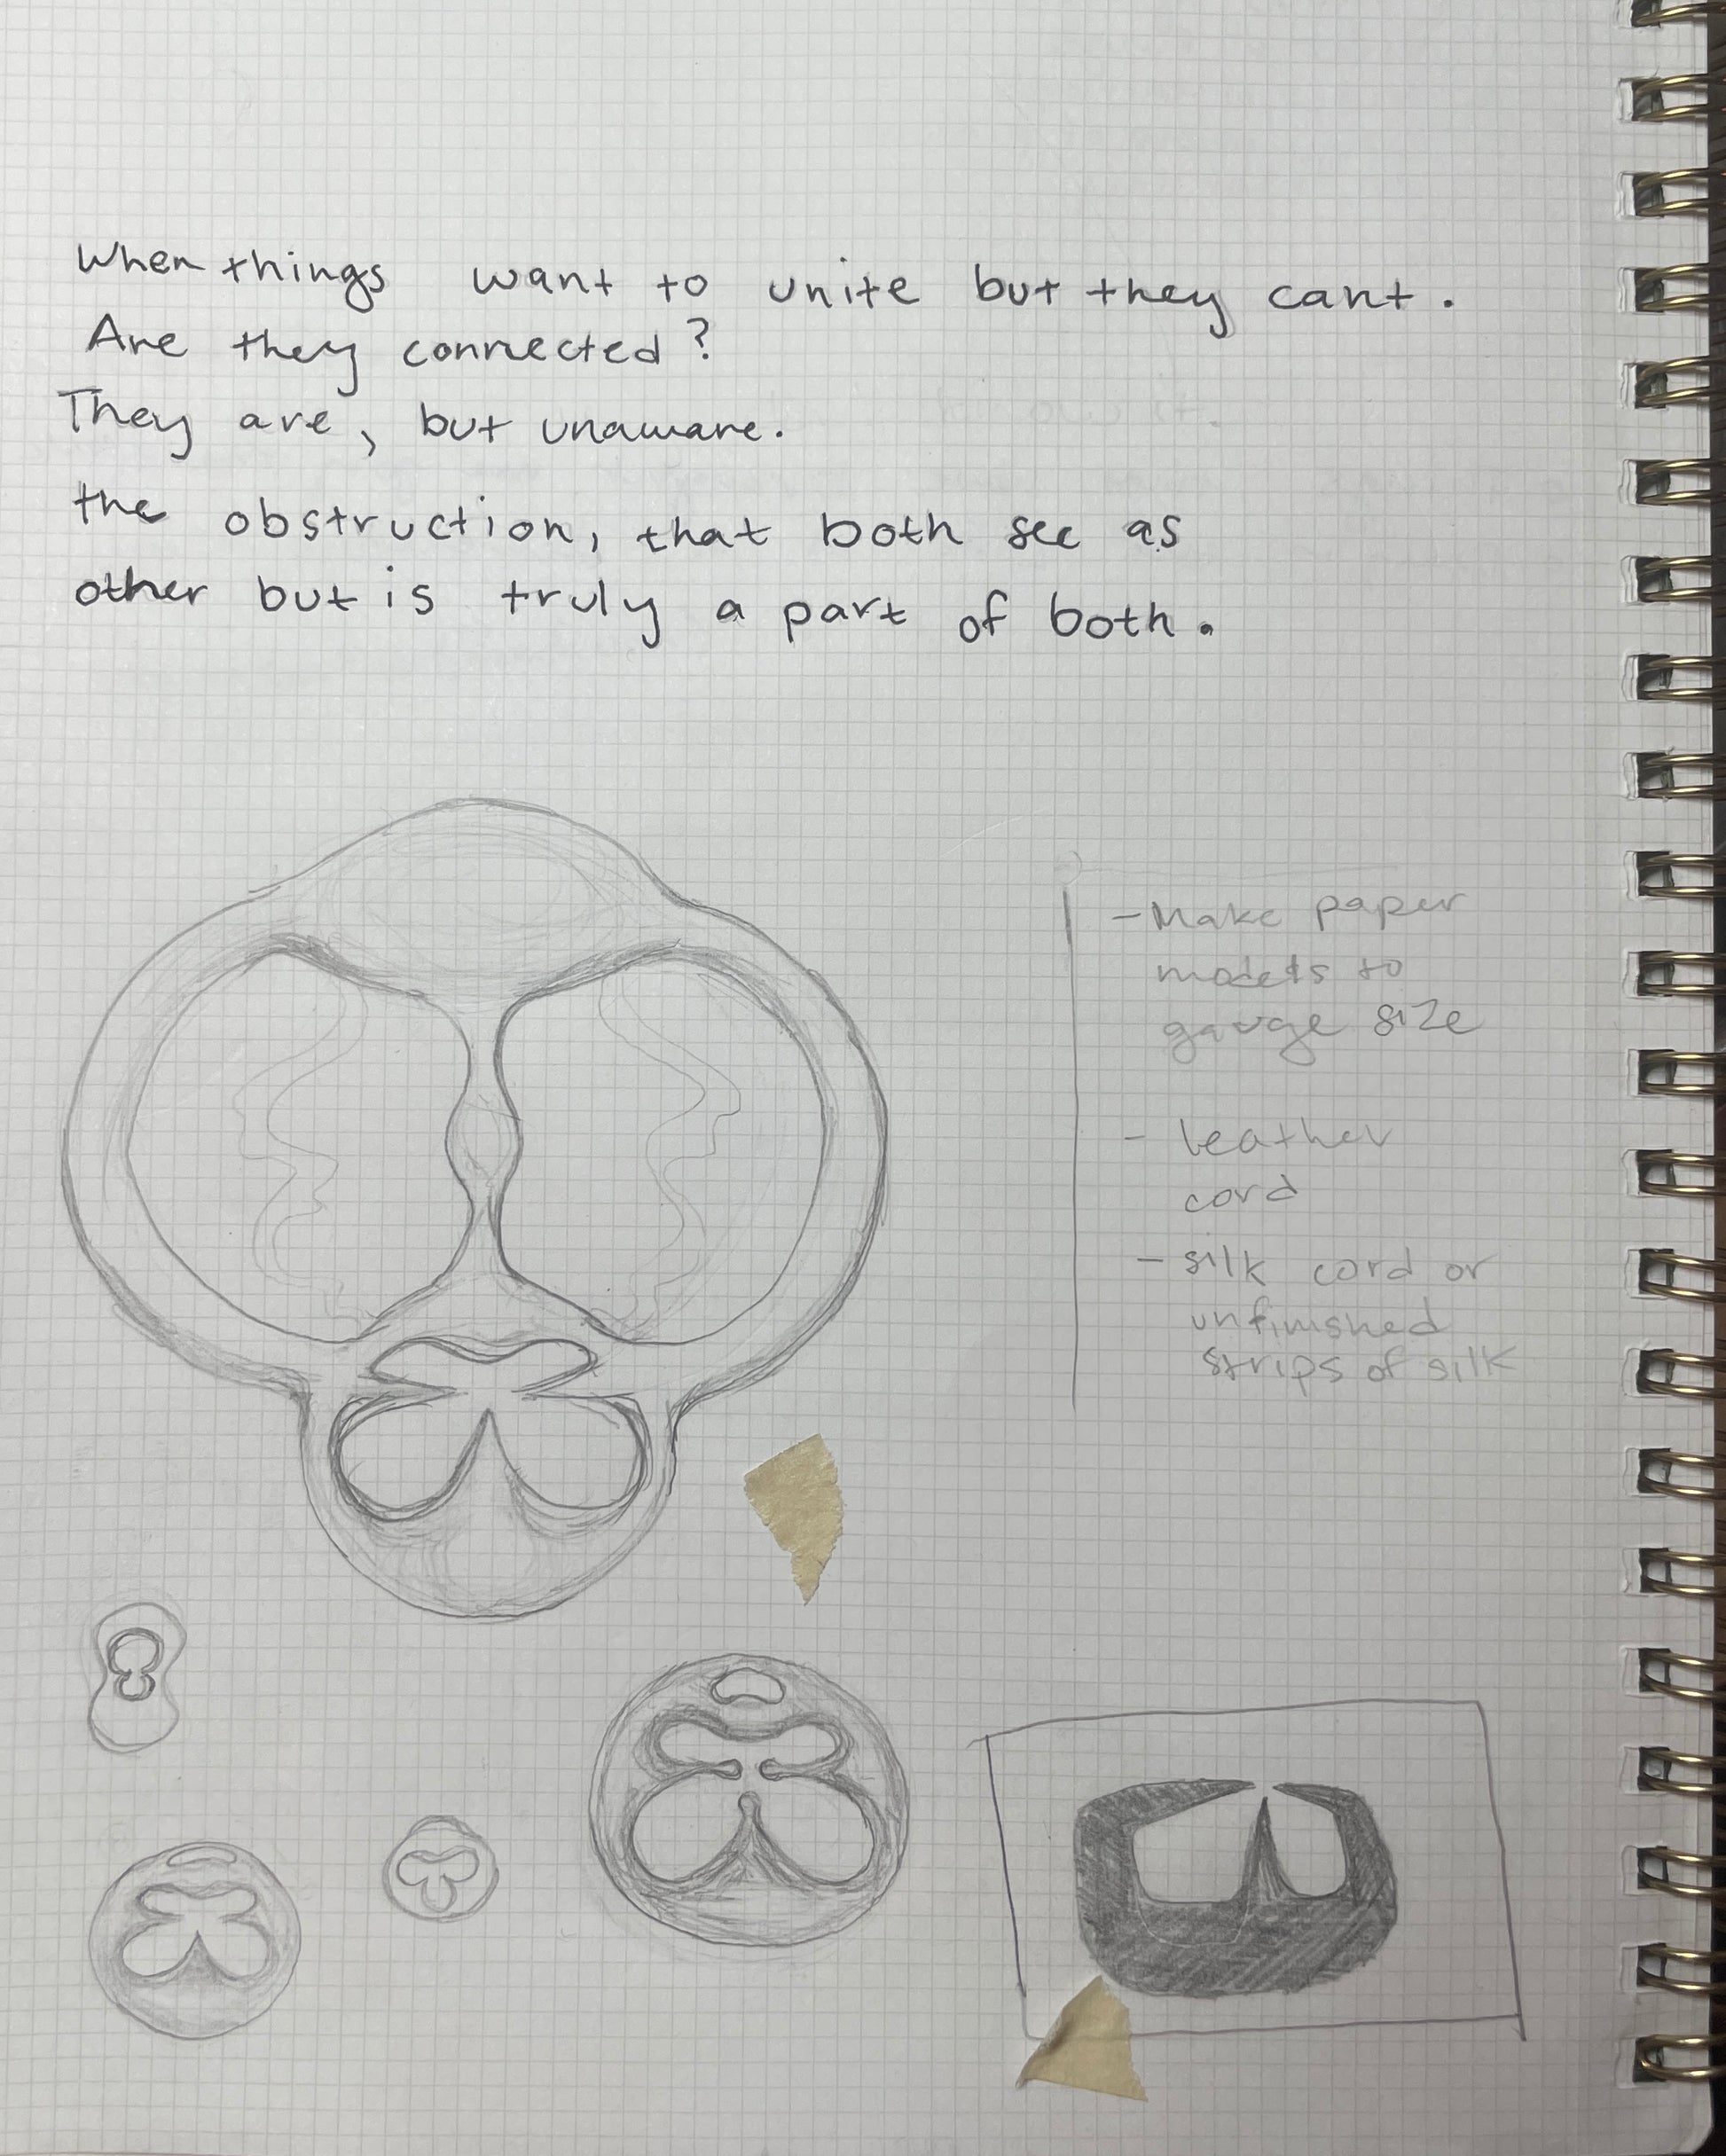 When things want to unite but they cant.
Are they connected?
They are, but unaware.
the obstruction, that both see as
other but is truly a part of both.
- Make paper
models to
gauge size
- leather
cord
- silk cord or
unfinished
strips of silk